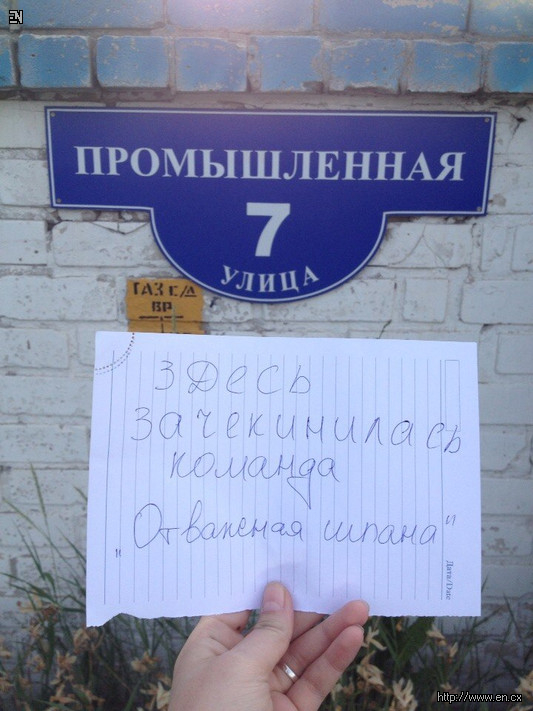 EN
ПРОМЫШЛЕННАЯ
7
УЛИЦА
ГАЗ г/д
ВР
здесь
зачекинилась
команда
„Отважная шпана"
Дата/Date
http://www.en.cx